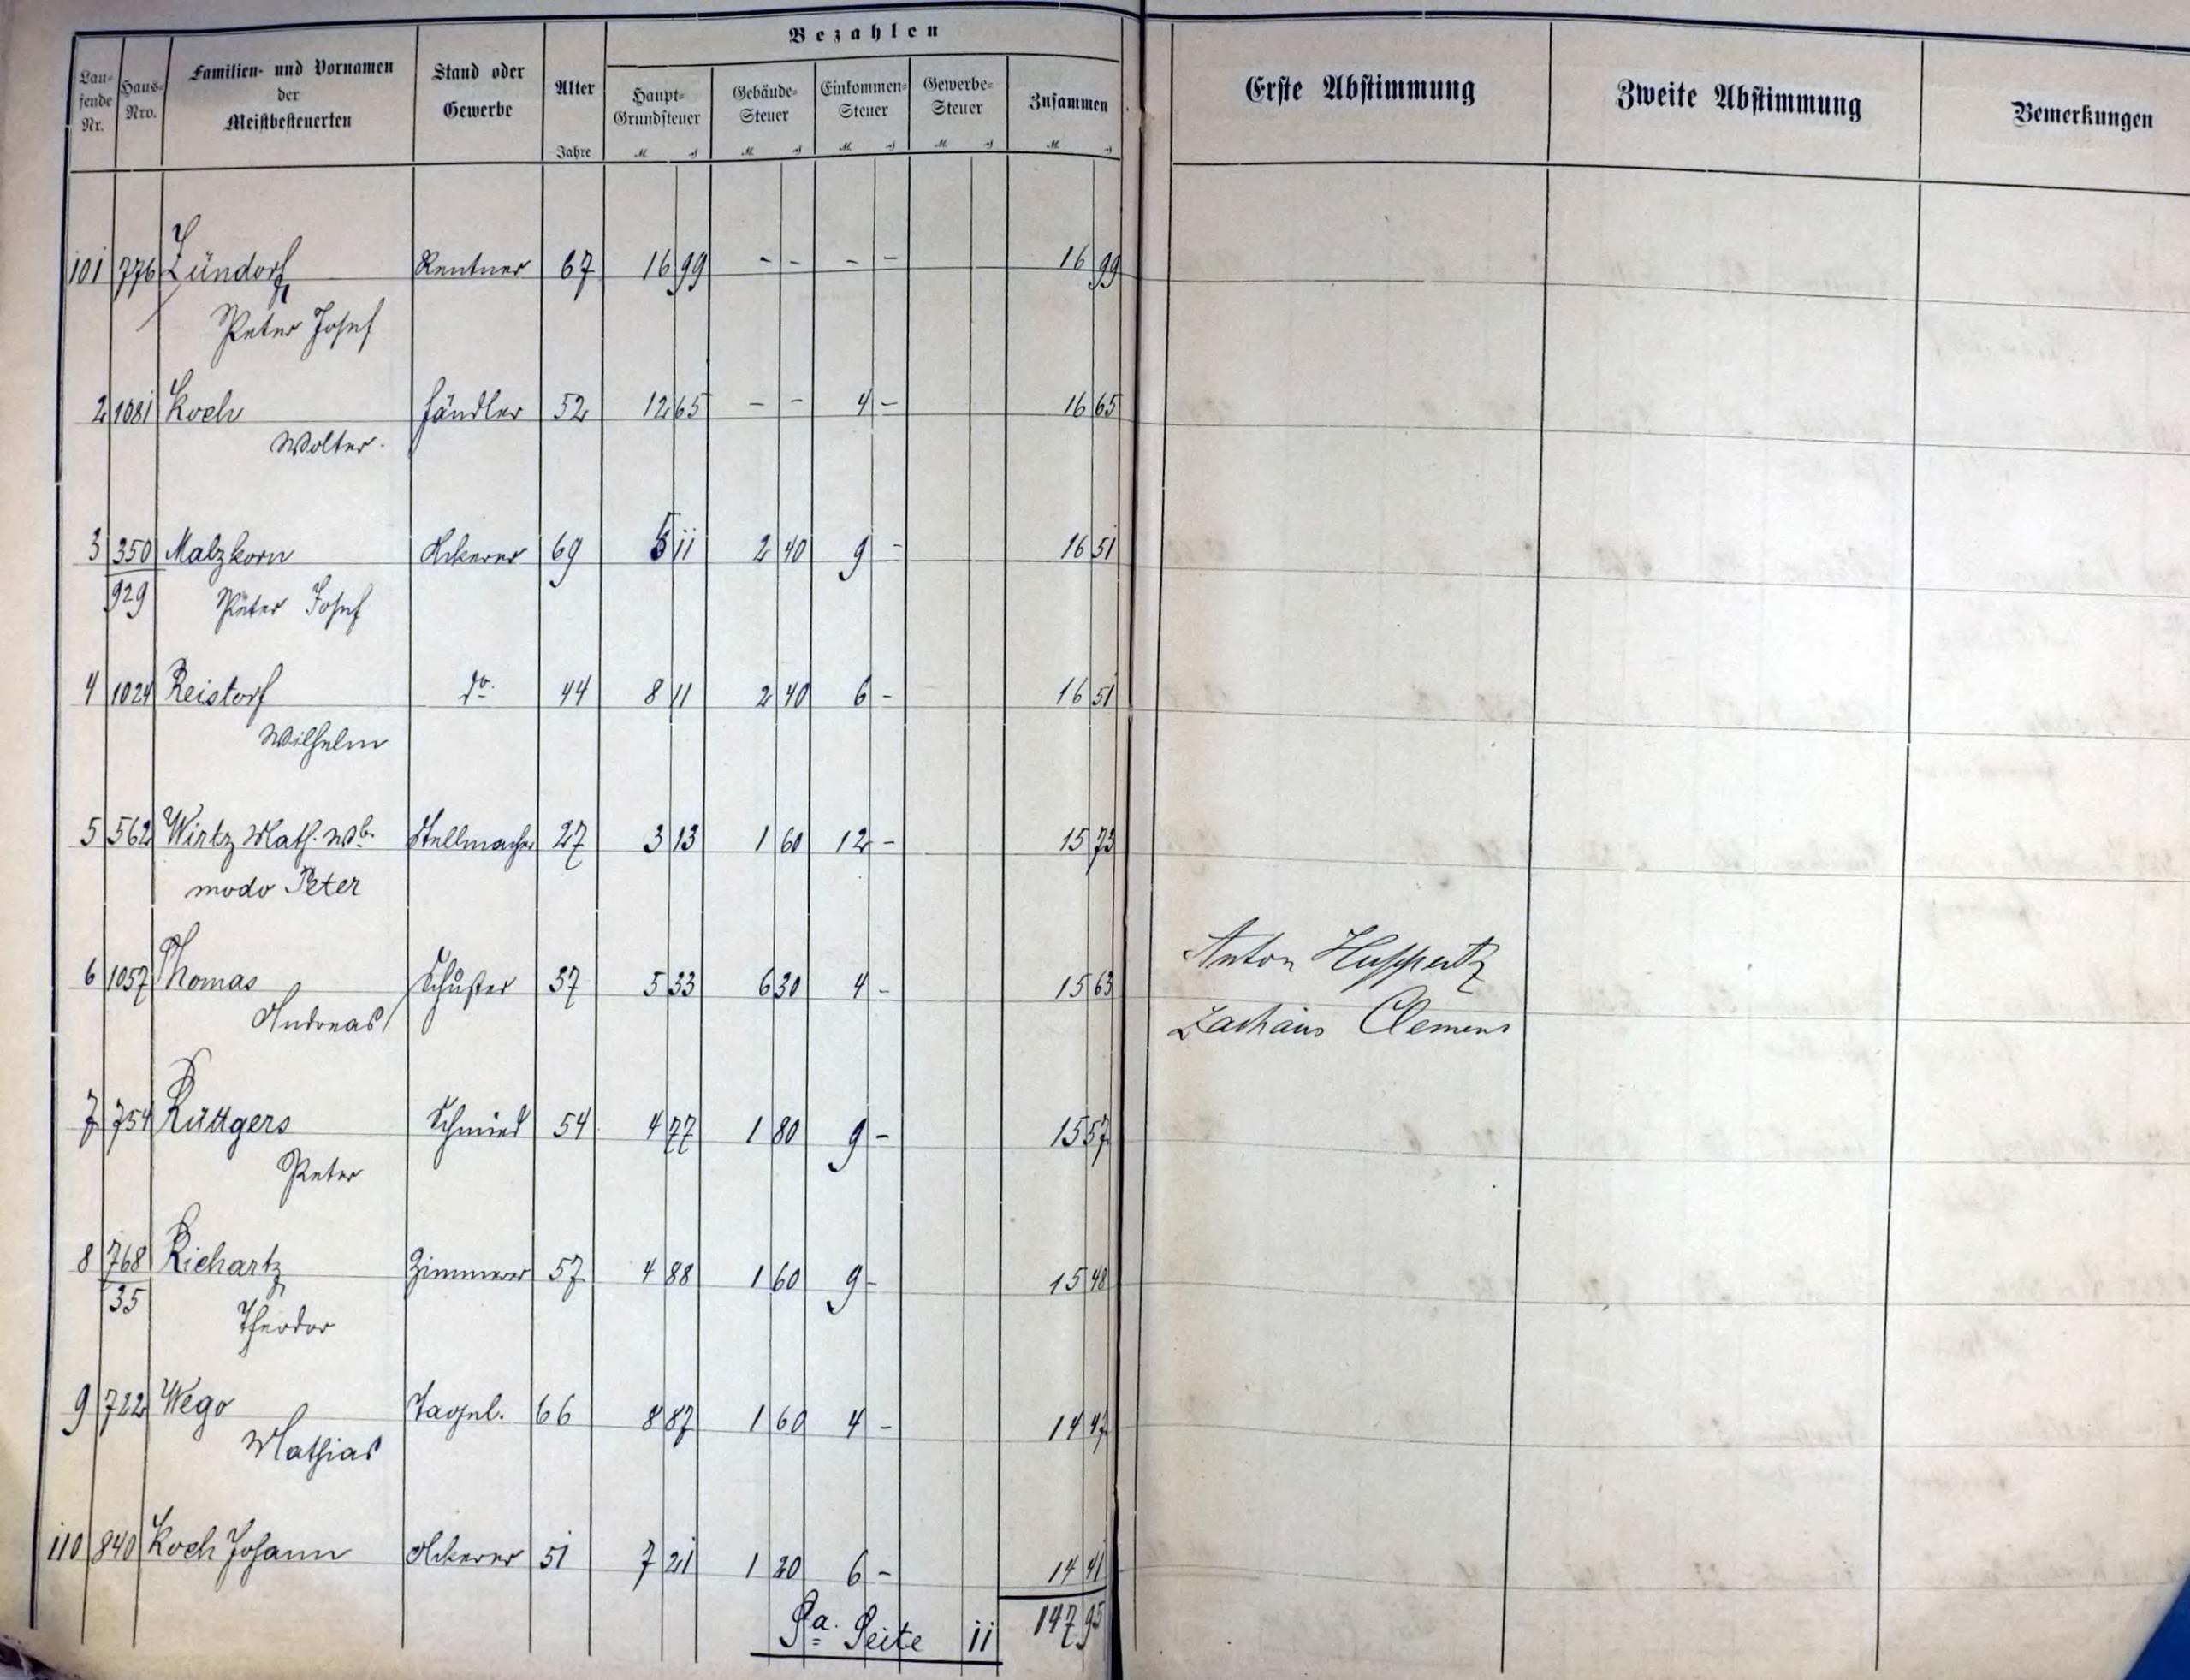 Bezahlen
Laufende Nr. Haus-Nro. Familien- und Vornamen der Meistbesteuerten Stand oder Gewerbe Alter Jahre Haupt-Grundsteuer Gebäude-Steuer Einkommen-Steuer Gewerbe-Steuer Zusammen Erste Abstimmung Zweite Abstimmung Bemerkungen
M ₰ M ₰ M ₰ M ₰ M ₰
101 776 Zündorf, Rentner 67 16 99 - - - - 16 99
Peter Josef
2 1081 Koch Händler 52 12 65 - - 4 - 16 65
Wolter.
3 350 Malzkorn Ackerer 69 5 11 2 40 9 - 16 51
929 Peter Josef
4 1024 Reistorf do. 44 8 11 2 40 6 - 16 51
Wilhelm
5 562 Wirtz Math. Wb. Stellmacher 27 3 13 1 60 12 - 15 73
modo Peter
6 1057 Thomas Schuster 37 5 33 6 30 4 - 15 63 Anton Huppertz
Andreas Zachäus Clemens
7 754 Rüttgers Schmied 54 4 77 1 80 9 - 15 57
Peter
8 768 Richartz Zimmerer 57 4 88 1 60 9 - 15 48
35 Theodor
9 722 Wego Tagel. 66 8 87 1 60 4 - 14 47
Mathias
110 840 Koch Johann Ackerer 51 7 21 1 20 6 - 14 41
Sa. Seite 11 147 95